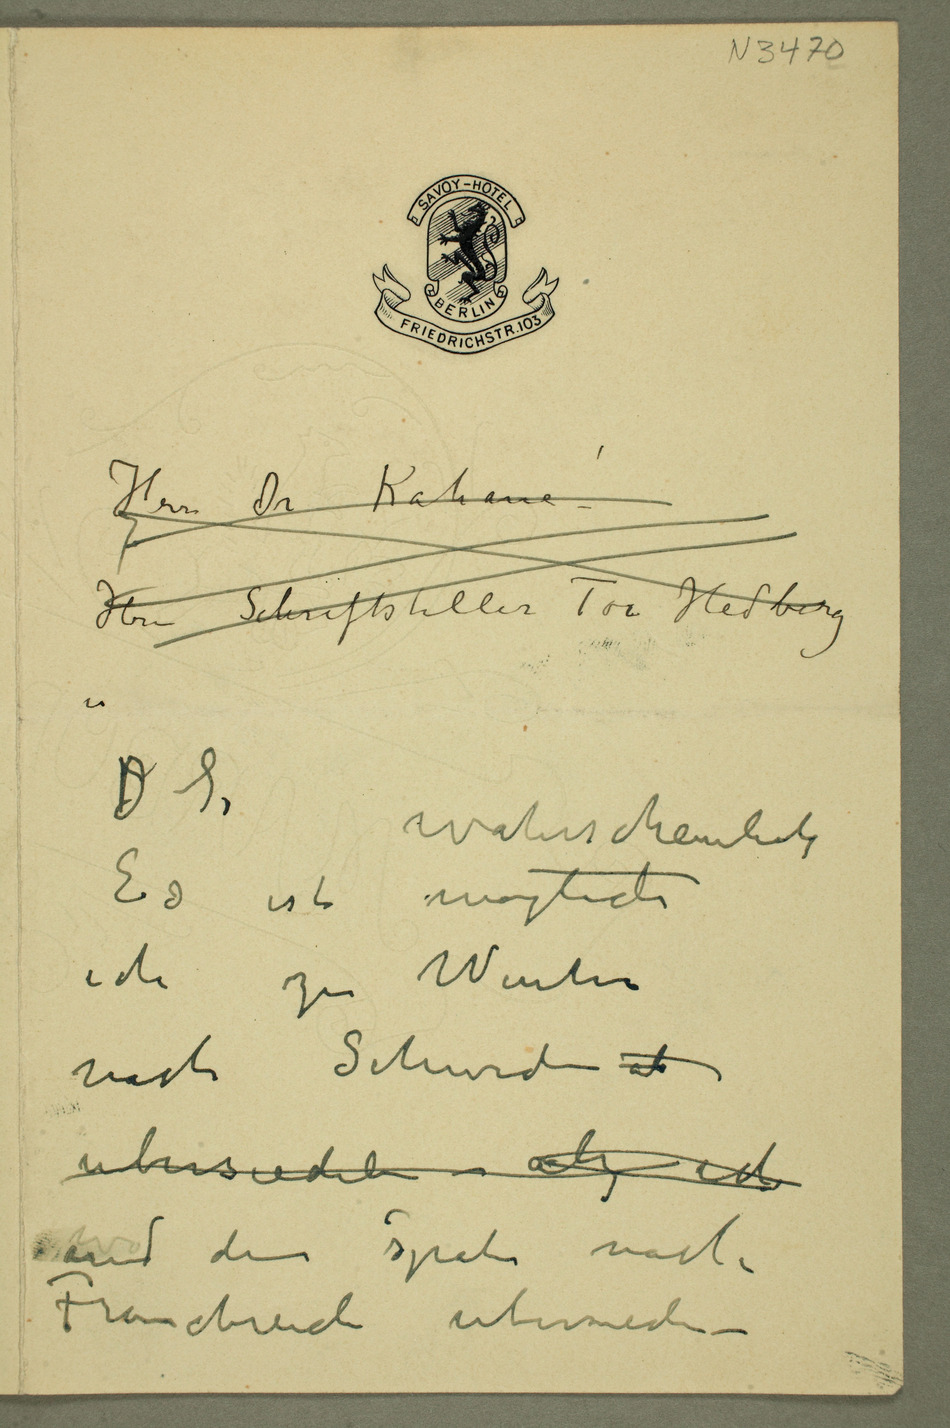 N3470
SAVOY-HOTEL
BERLIN
FRIEDRICHSTR.103
Herr Dr Kahane!
Herrn Schriftsteller Tor Hedberg
D
wahrscheinlich
Es ist möglich
ich zu Winter
nach Schweden
übersiedeln ich
und den später nach
Franckreich